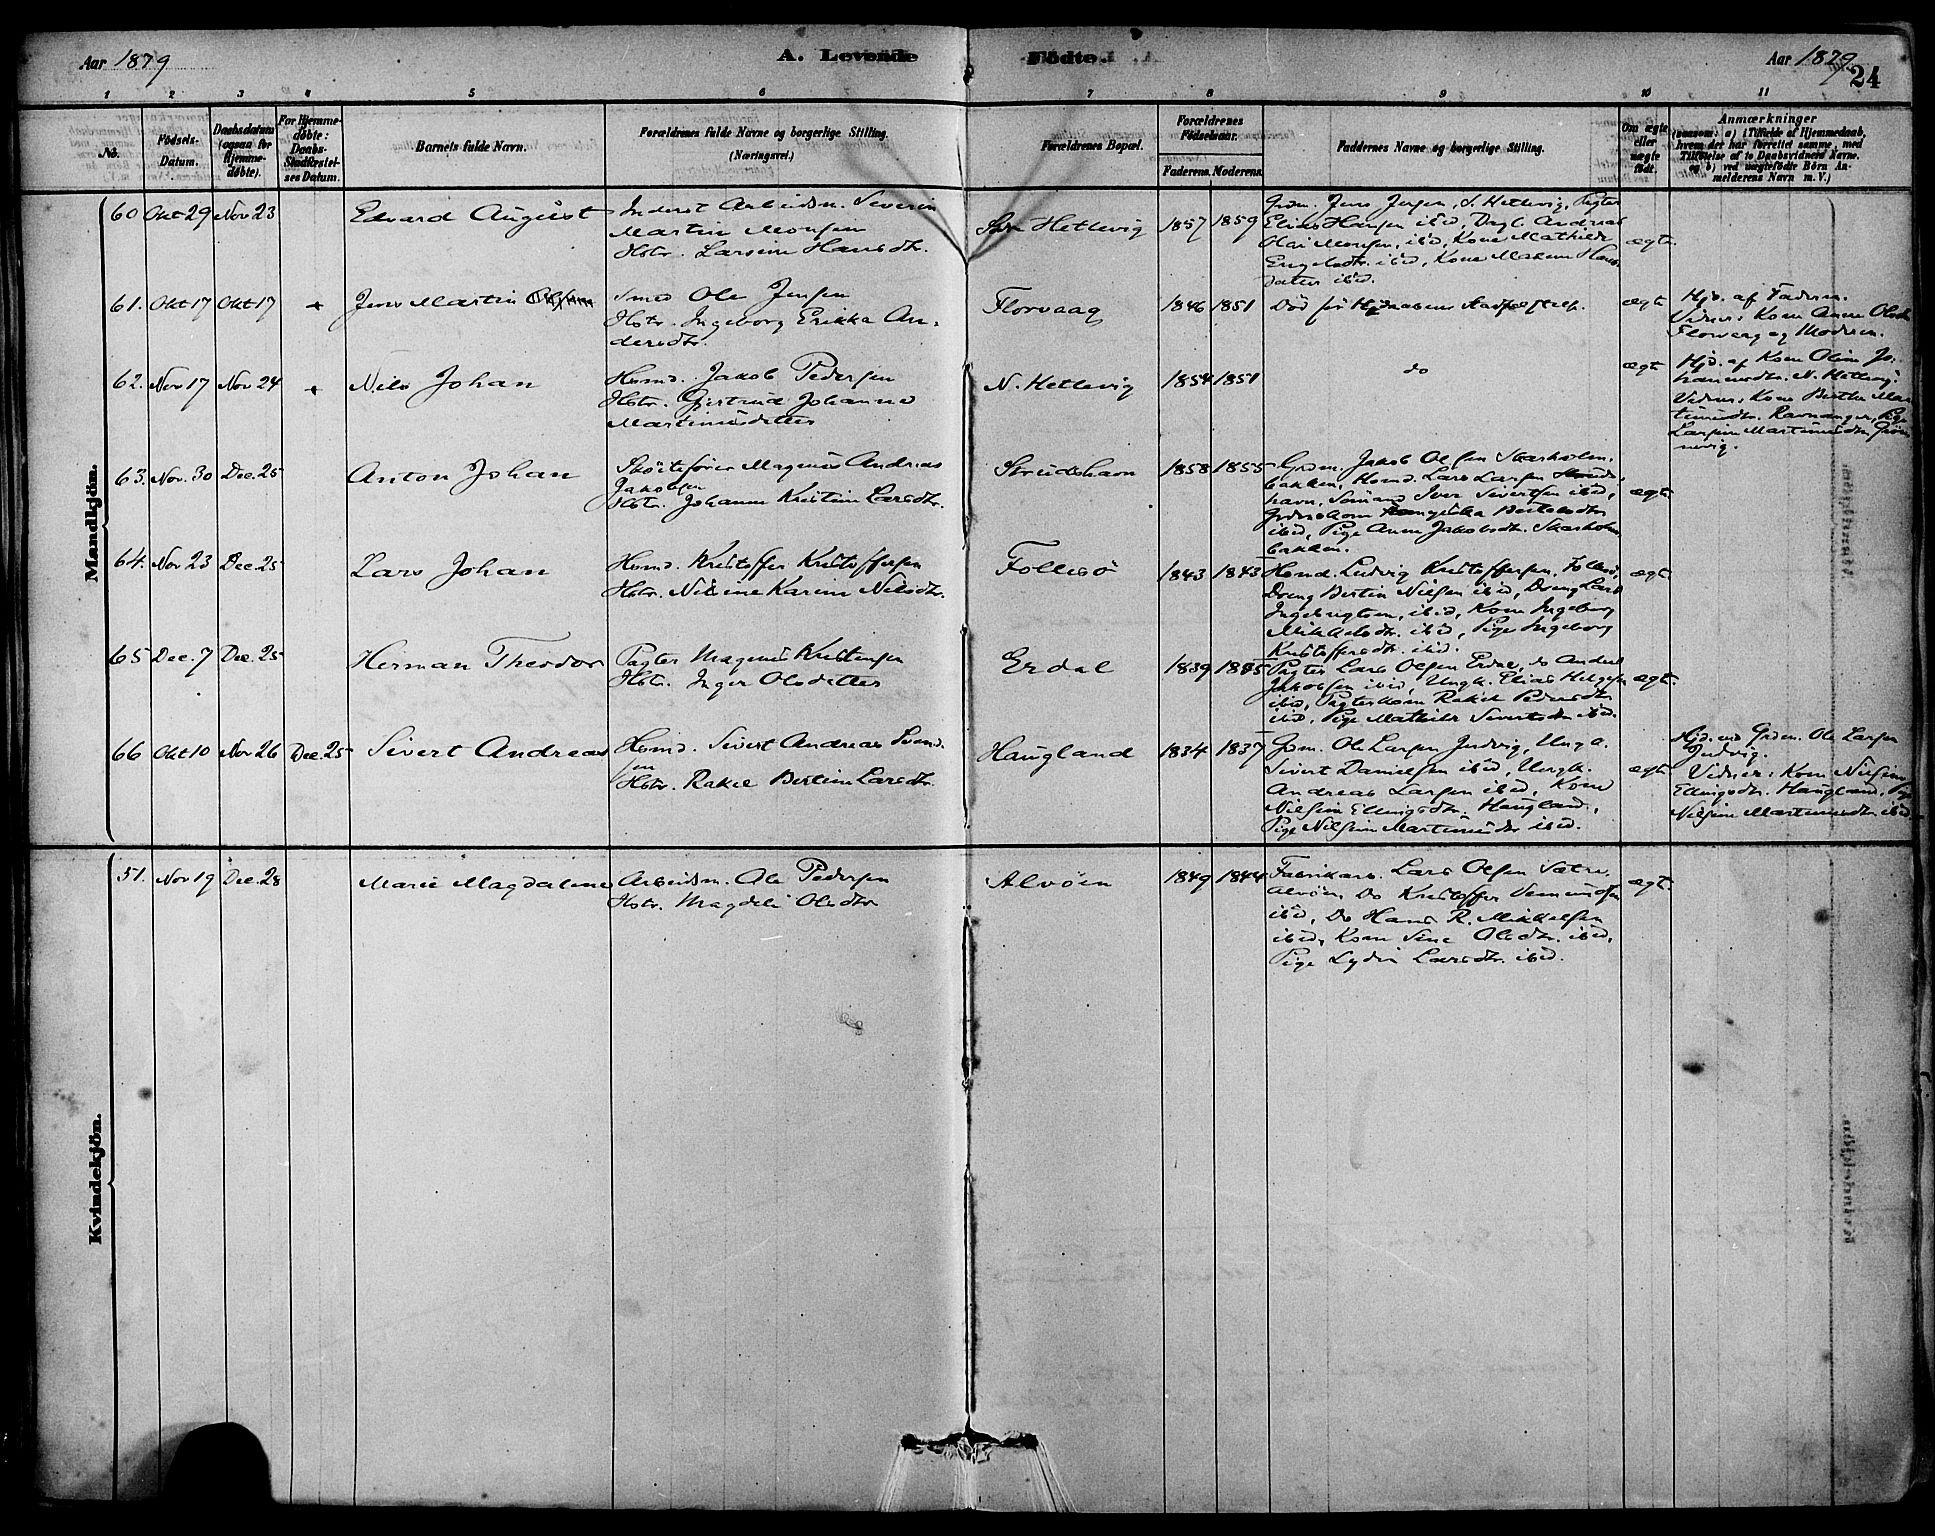 Aar 1879
A. Levende Fødte.
Aar 1879
24
1 2 3 4 5 6 7 8 9 10 11
No.
Fødsels-
Datum.
Daabsdatum
(ogsaa for
Hjemme-
døbte).
For Hjemme-
døbte:
Daabs-
Stadfæstel-
ses Datum.
Barnets fulde Navn.
Forældrenes fulde Navne og borgerlige Stilling.
(Næringsvei.)
Forældrenes Bopæl.
Forældrenes
Fødselsaar.
Faderens. Moderens.
Faddernes Navne og borgerlige Stilling.
Om ægte
eller
uægte
født.
Anmærkninger
(saasom: a) i Tilfælde af Hjemmedaab,
hvem der har forrettet samme, med
Tilføielse af to Daabsvidners Navne,
og b) ved uægtefødte Børn An-
melderens Navn m. V.)
Mandkjön.
60 Okt 29 Nov 23
Edvard August
Inderst Arbeidsm. Severin
Martin Monsen
Hstr. Larsine Hansdtr.
Hetlevig
1857 1859
Grdm. Jens Jensen, S. Hetlevig, Pagter
Elias Hansen ibid, Andreas
Olai Monsen, ibid, Kone Mathilde
Engelsdtr. ibid, Kone
datter ibid.
ægte
61. Okt 17 Okt 17
Jens Martin
Smed Ole Jensen
Hstr. Ingeborg Erikka An-
dersdtr.
Florvaag
1846 1851
Død før Hjdaabens Stadfæstelse.
ægte
Hjd. af Faderen.
Vidner: Kone Anne Olsdtr
Florvaag og Moderen.
62. Nov 17 Nov 24
Nils Johan
Hsmd. Jakob Pedersen
Hstr. Gjertrud Johanne
Martinusdatter
N. Hetlevig
1854 1851
do
ægte
Hjd. af Kone Oline Jo-
hannesdtr. N. Hetlevig.
Vidner: Kone Berthe Mar-
tinusdtr. Ravnanger, Pige
Larsine Martinusdtr.
63. Nov. 30 Dec. 25
Anton Johan
Skøitefører Magnus Andreas
Jakobsen
Hstr. Johanne Kristine Larsdtr.
Strudshavn
1858 1855
Grdm. Jakob Olsen Skarholm-
bakken, Hsmd. Lars Larsen Struds-
havn, Sømand Iver Sivertsen ibid,
Bertelsdtr
ibid, Pige Anne Jakobsdtr. Skarholm-
bakken.
ægte
64. Nov 23 Dec. 25
Lars Johan
Hsmd. Kristoffer Kristoffersen
Hstr. Nilsine Karine Nilsdtr.
Follesø
1843 1843
Hsmd. Ludvig Kristoffersen, Follesø,
Dreng Bertin Nilsen ibid, Dreng Lars
Ingebrigtsen, ibid, Kone Ingeborg
Mikkelsdtr. ibid, Pige Ingeborg
Kristoffersdtr. ibid.
ægte
65 Dec. 7 Dec. 25
Herman Theodor
Pagter Magnus Kristensen
Hstr. Inger Olsdatter
Erdal
1839 1835
Pagter Lars Olsen Erdal, do Anders
Jakobsen ibid, Ungk. Elias Helgesen
ibid, Pagterkone Rakel Pedersdtr
ibid, Pige Mathilde Sivertsdtr ibid.
ægte
66 Okt 10 Nov 26 Dec. 25
Sivert Andreas
Hsmd. Sivert Andreas Svend-
sen
Hstr. Rakel Bertine Larsdtr.
Haugland
1834 1837
Grdm. Ole Larsen Juvdvig, Ungk.
Sivert Danielsen ibid, Ungk.
Andreas Larsen ibid, Kone
Nilsine Ellingsdtr. Haugland,
Pige Nilsine Martinusdtr ibid.
ægte
Hjd. ved Grdm. Ole Larsen
Vidner: Kone Nilsine
Ellingsdtr. Haugland, Pige
Nilsine Martinusdtr ibid
Kvindekjön.
51. Nov 19 Dec. 28
Marie Magdalene
Arbeidsm. Ole Pedersen
Hstr. Magdeli Olsdtr
Alvøen
1849 1844
Fabrikarb. Lars Olsen Sætre,
Alvøen, Do Kristoffer
ibid, Do Hans R. Mikkelsen
ibid, Kone Sine Olsdtr. ibid,
Pige Lydia Larsdtr. ibid.
ægte